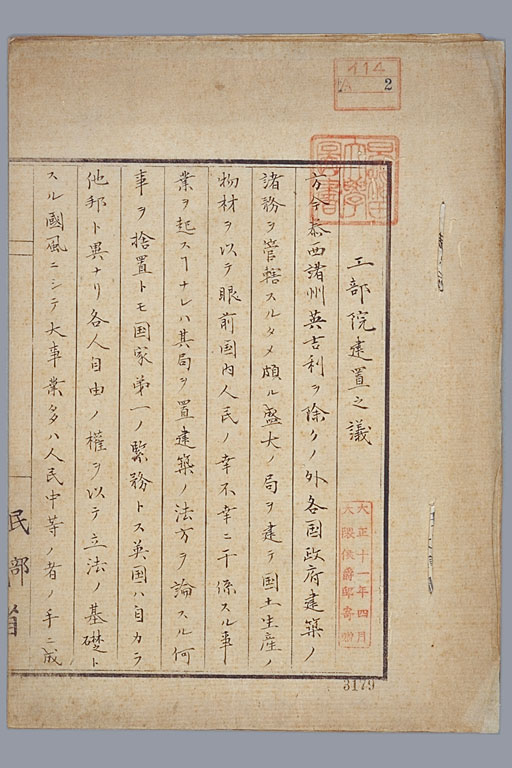 114
2
工部院建置之議
方今泰西諸州英吉利ヲ除クノ外各国政府建築ノ
諸務ヲ管轄スルタメ頗ル盛大ノ局ヲ建テ国土生産ノ
物材ヲ以テ眼前国内人民ノ幸不幸ニ干係スル事
業ヲ起スヿナレハ其局ヲ置建築ノ法方ヲ論スル何
事ヲ捨置トモ国家第一ノ緊務トス英国ハ自カラ
他邦ト異ナリ各人自由ノ權ヲ以テ立法ノ基礎ト
スル國風ニシテ大事業多ハ人民中等ノ者ノ手ニ成
民部省
大正十一年四月
大隈侯爵邸寄贈
3179